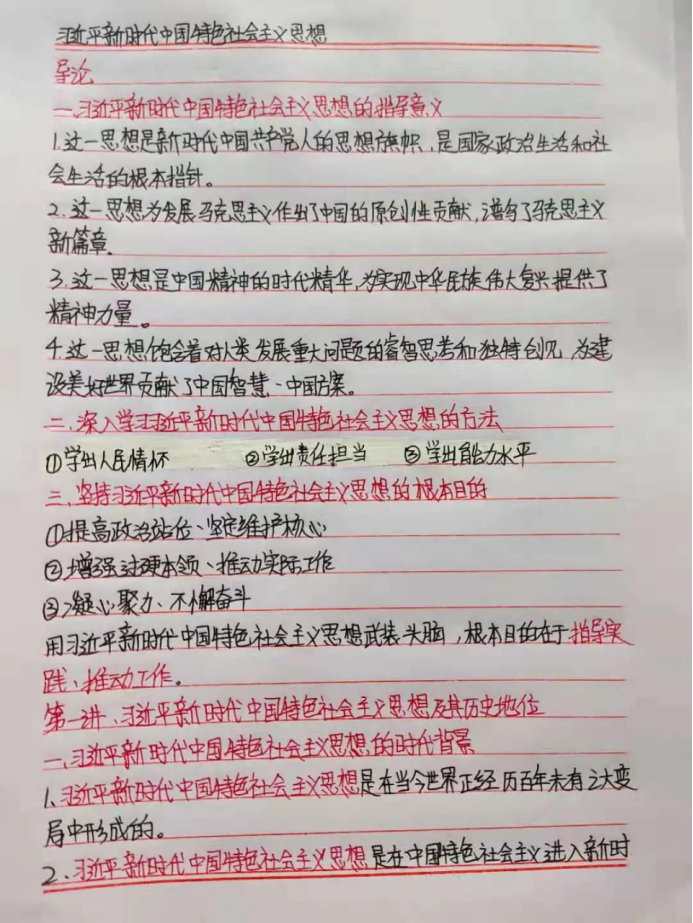 习近平新时代中国特色社会主义思想
导论
一、习近平新时代中国特色社会主义思想的指导意义
1.这一思想是新时代中国共产党人的思想旗帜,是国家政治生活和社
会生活的根本指针。
2.这一思想为发展马克思主义作出了中国的原创性贡献,谱写了马克思主义
新篇章.
3.这一思想是中国精神的时代精华,为实现中华民族伟大复兴提供了
精神力量。
4.这一思想饱含着对人类发展重大问题的睿智思考和独特创见,为建
设美好世界贡献了中国智慧、中国方案。
二、深入学习习近平新时代中国特色社会主义思想的方法
①学出人民情怀 ②学出责任担当 ③学出能力水平
三、坚持习近平新时代中国特色社会主义思想的根本目的
①提高政治站位、坚定维护核心
②增强过硬本领、推动实际工作
③凝心聚力、不懈奋斗
用习近平新时代中国特色社会主义思想武装头脑,根本目的在于指导实
践、推动工作。
第一讲、习近平新时代中国特色社会主义思想及其历史地位
一、习近平新时代中国特色社会主义思想的时代背景
1、习近平新时代中国特色社会主义思想是在当今世界正经历百年未有之大变
局中形成的。
2、习近平新时代中国特色社会主义思想是在中国特色社会主义进入新时